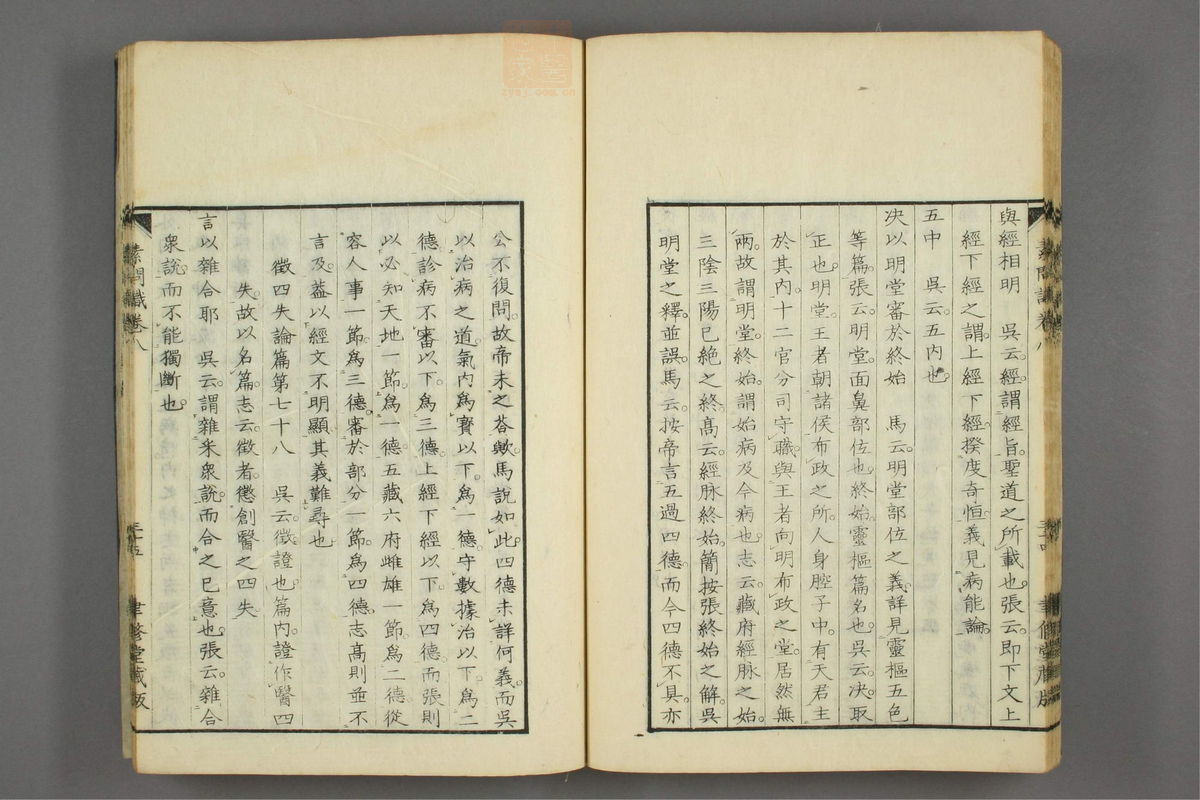 與經相明　吳云經謂經旨聖道之所載也張云即下文上
經下經之謂上經下經揆度奇恒義見病能論
五中　吳云五內也
决以明堂審於終始　馬云明堂部位之義詳見靈樞五色
等篇張云明堂面鼻部位也終始靈樞篇名也吳云决取
正也明堂王者朝諸侯布政之所人身腔子中有天君主
於其內十二官分司守職與王者向明布政之堂居然無
兩故謂明堂終始謂始病及今病也志云藏府經脉之始
三陰三陽已絶之終高云經脉終始簡按張終始之解吳
明堂之釋並誤馬云按帝言五過四德而今四德不具亦
公不復問故帝未之荅歟馬說如此四德未詳何義而吳
以治病之道氣內為寳以下為一德守數據治以下為二
德診病不審以下為三德上經下經以下為四德而張則
以必知天地一節為一德五藏六府雌雄一節為二德從
容人事一節為三德審於部分一節為四德志高則並不
言及葢以經文不明顯其義難尋也
徵四失論篇第七十八　吳云徵證也篇內證作醫四
失故以名篇志云徵者懲創醫之四失
言以雜合耶　吳云謂雜釆衆說而合之已意也張云雜合
衆說而不能獨斷也
素問識卷八
三十五
聿修堂藏版